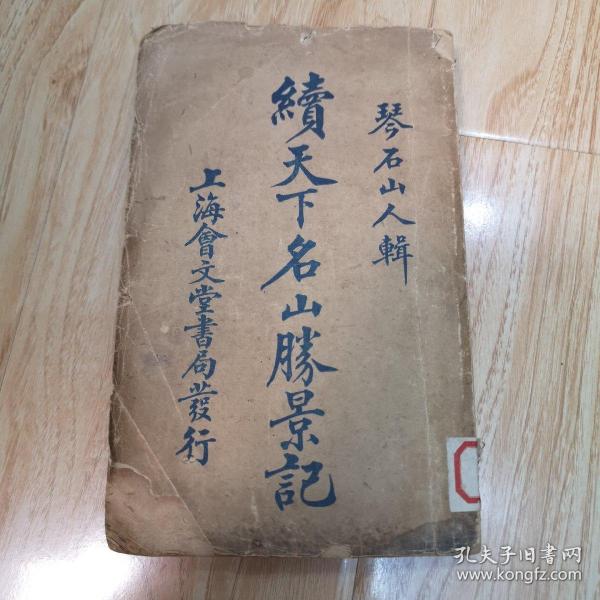 琴石山人輯
續天下名山勝景記
上海會文堂書局發行
孔夫子旧書网
www.kongfz.com